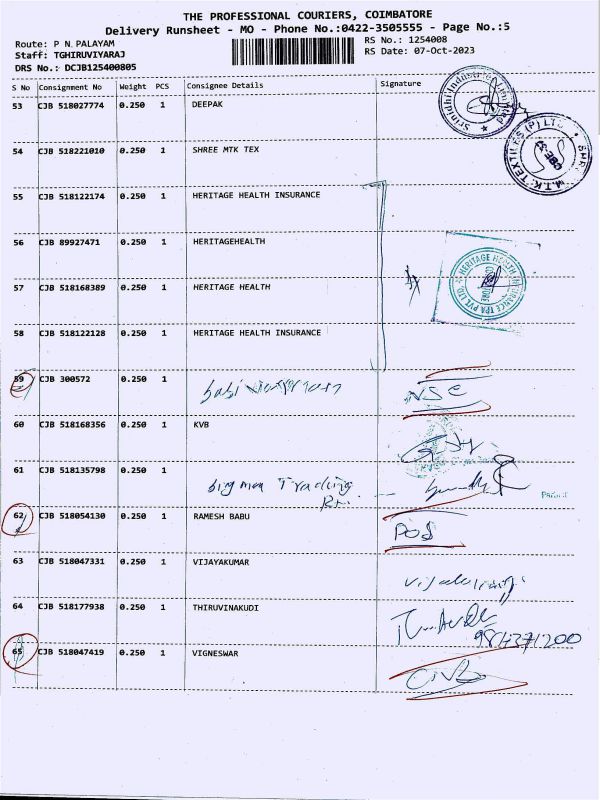 THE PROFESSIONAL COURIERS, COIMBATORE
Delivery Runsheet - MO - Phone No.:0422-3505555 - Page No.:5
Route: P N.PALAYAM
RS No.: 1254008
Staff: TGHIRUVIYARAJ
RS Date: 07-Oct-2023
DRS No.: DCJB125400805
S No Consignment No Weight PCS Consignee Details Signature
53 CJB 518027774 0.250 1 DEEPAK
54 CJB 518221010 0.250 1 SHREE MTK TEX
55 CJB 518122174 0.250 1 HERITAGE HEALTH INSURANCE
56 CJB 89927471 0.250 1 HERITAGEHEALTH
57 CJB 518168389 0.250 1 HERITAGE HEALTH
HERITAGE HEALTH INSURANCE TPA PVT. LTD.
58 CJB 518122128 0.250 1 HERITAGE HEALTH INSURANCE
59 CJB 300572 0.250 1 NSC
60 CJB 518168356 0.250 1 KVB
61 CJB 518135798 0.250 1 Trading
62 CJB 518054130 0.250 1 RAMESH BABU
63 CJB 518047331 0.250 1 VIJAYAKUMAR
64 CJB 518177938 0.250 1 THIRUVINAKUDI
65 CJB 518047419 0.250 1 VIGNESWAR